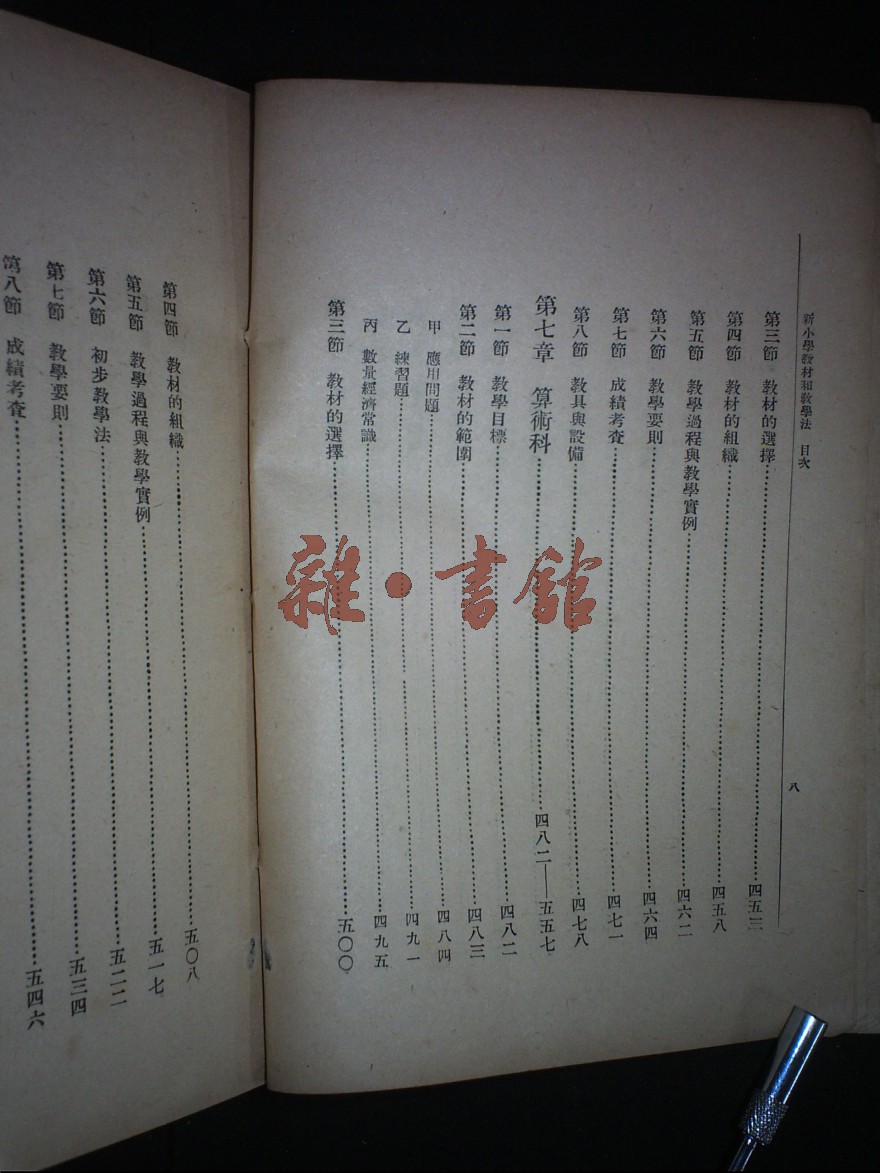 新小學教材和教學法 目次
八
第三節 教材的選擇……四五三
第四節 教材的組織……四五八
第五節 教學過程與教學實例……四六二
第六節 教學要則……四六四
第七節 成績考查……四七一
第八節 教具與設備……四七八
第七章 算術科……四八二——五五七
第一節 教學目標……四八二
第二節 教材的範圍……四八三
甲 應用問題……四八四
乙 練習題……四九一
丙 數量經濟常識……四九五
第三節 教材的選擇……五〇〇
第四節 教材的組織……五〇八
第五節 教學過程與教學實例……五一七
第六節 初步教學法……五二二
第七節 教學要則……五三四
第八節 成績考查……五四六
雜·書館